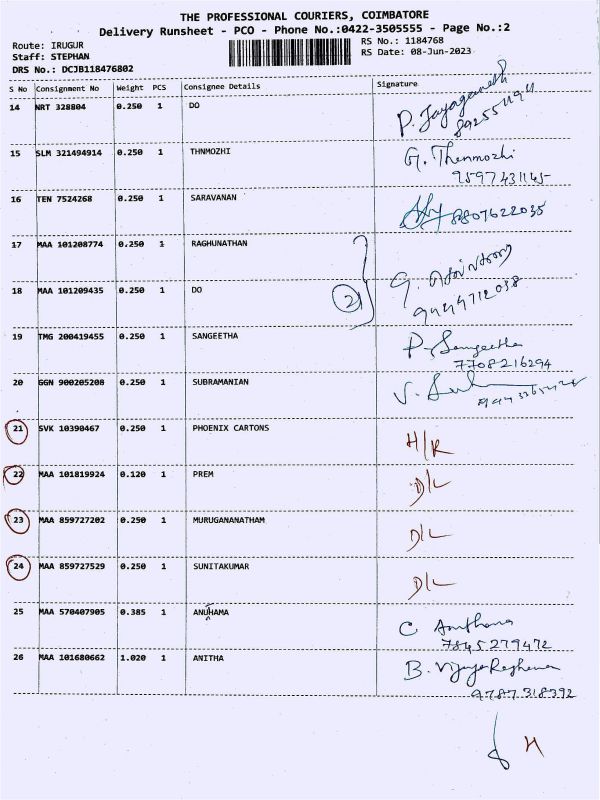 THE PROFESSIONAL COURIERS, COIMBATORE
Delivery Runsheet - PCO - Phone No.:0422-3505555 - Page No.:2
Route: IRUGUR
Staff: STEPHAN
DRS No.: DCJB118476802
RS No.: 1184768
RS Date: 08-Jun-2023
S No Consignment No Weight PCS Consignee Details Signature
14 NRT 328804 0.250 1 DO P. Jayaganesh
15 SLM 321494914 0.250 1 THNMOZHI G. Thenmozhi
9597431145
16 TEN 7524268 0.250 1 SARAVANAN 8807622035
17 MAA 101208774 0.250 1 RAGHUNATHAN
18 MAA 101209435 0.250 1 DO 2 G.
9444712038
19 TMG 200419455 0.250 1 SANGEETHA P. Sangeetha
7708216294
20 GGN 900205208 0.250 1 SUBRAMANIAN V.
21 SVK 10390467 0.250 1 PHOENIX CARTONS H/R
22 MAA 101819924 0.120 1 PREM D/L
23 MAA 859727202 0.250 1 MURUGANANATHAM D/L
24 MAA 859727529 0.250 1 SUNITAKUMAR D/L
25 MAA 570407905 0.385 1 ANUHAMA C.
7845279472
26 MAA 101680662 1.020 1 ANITHA B.
9787318392
H